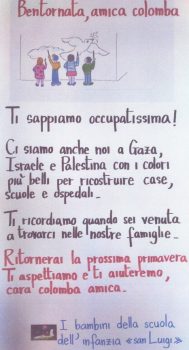 Bentornata, amica colomba
Ti sappiamo occupatissima!
Ci siamo anche noi a Gaza,
Israele e Palestina con i colori
più belli per ricostruire case,
scuole e ospedali.
Ti ricordiamo quando sei venuta
a trovarci nelle nostre famiglie.
Ritornerai la prossima primavera
Ti aspettiamo e ti aiuteremo,
cara colomba amica.
I bambini della scuola
dell'infanzia «san Luigi»